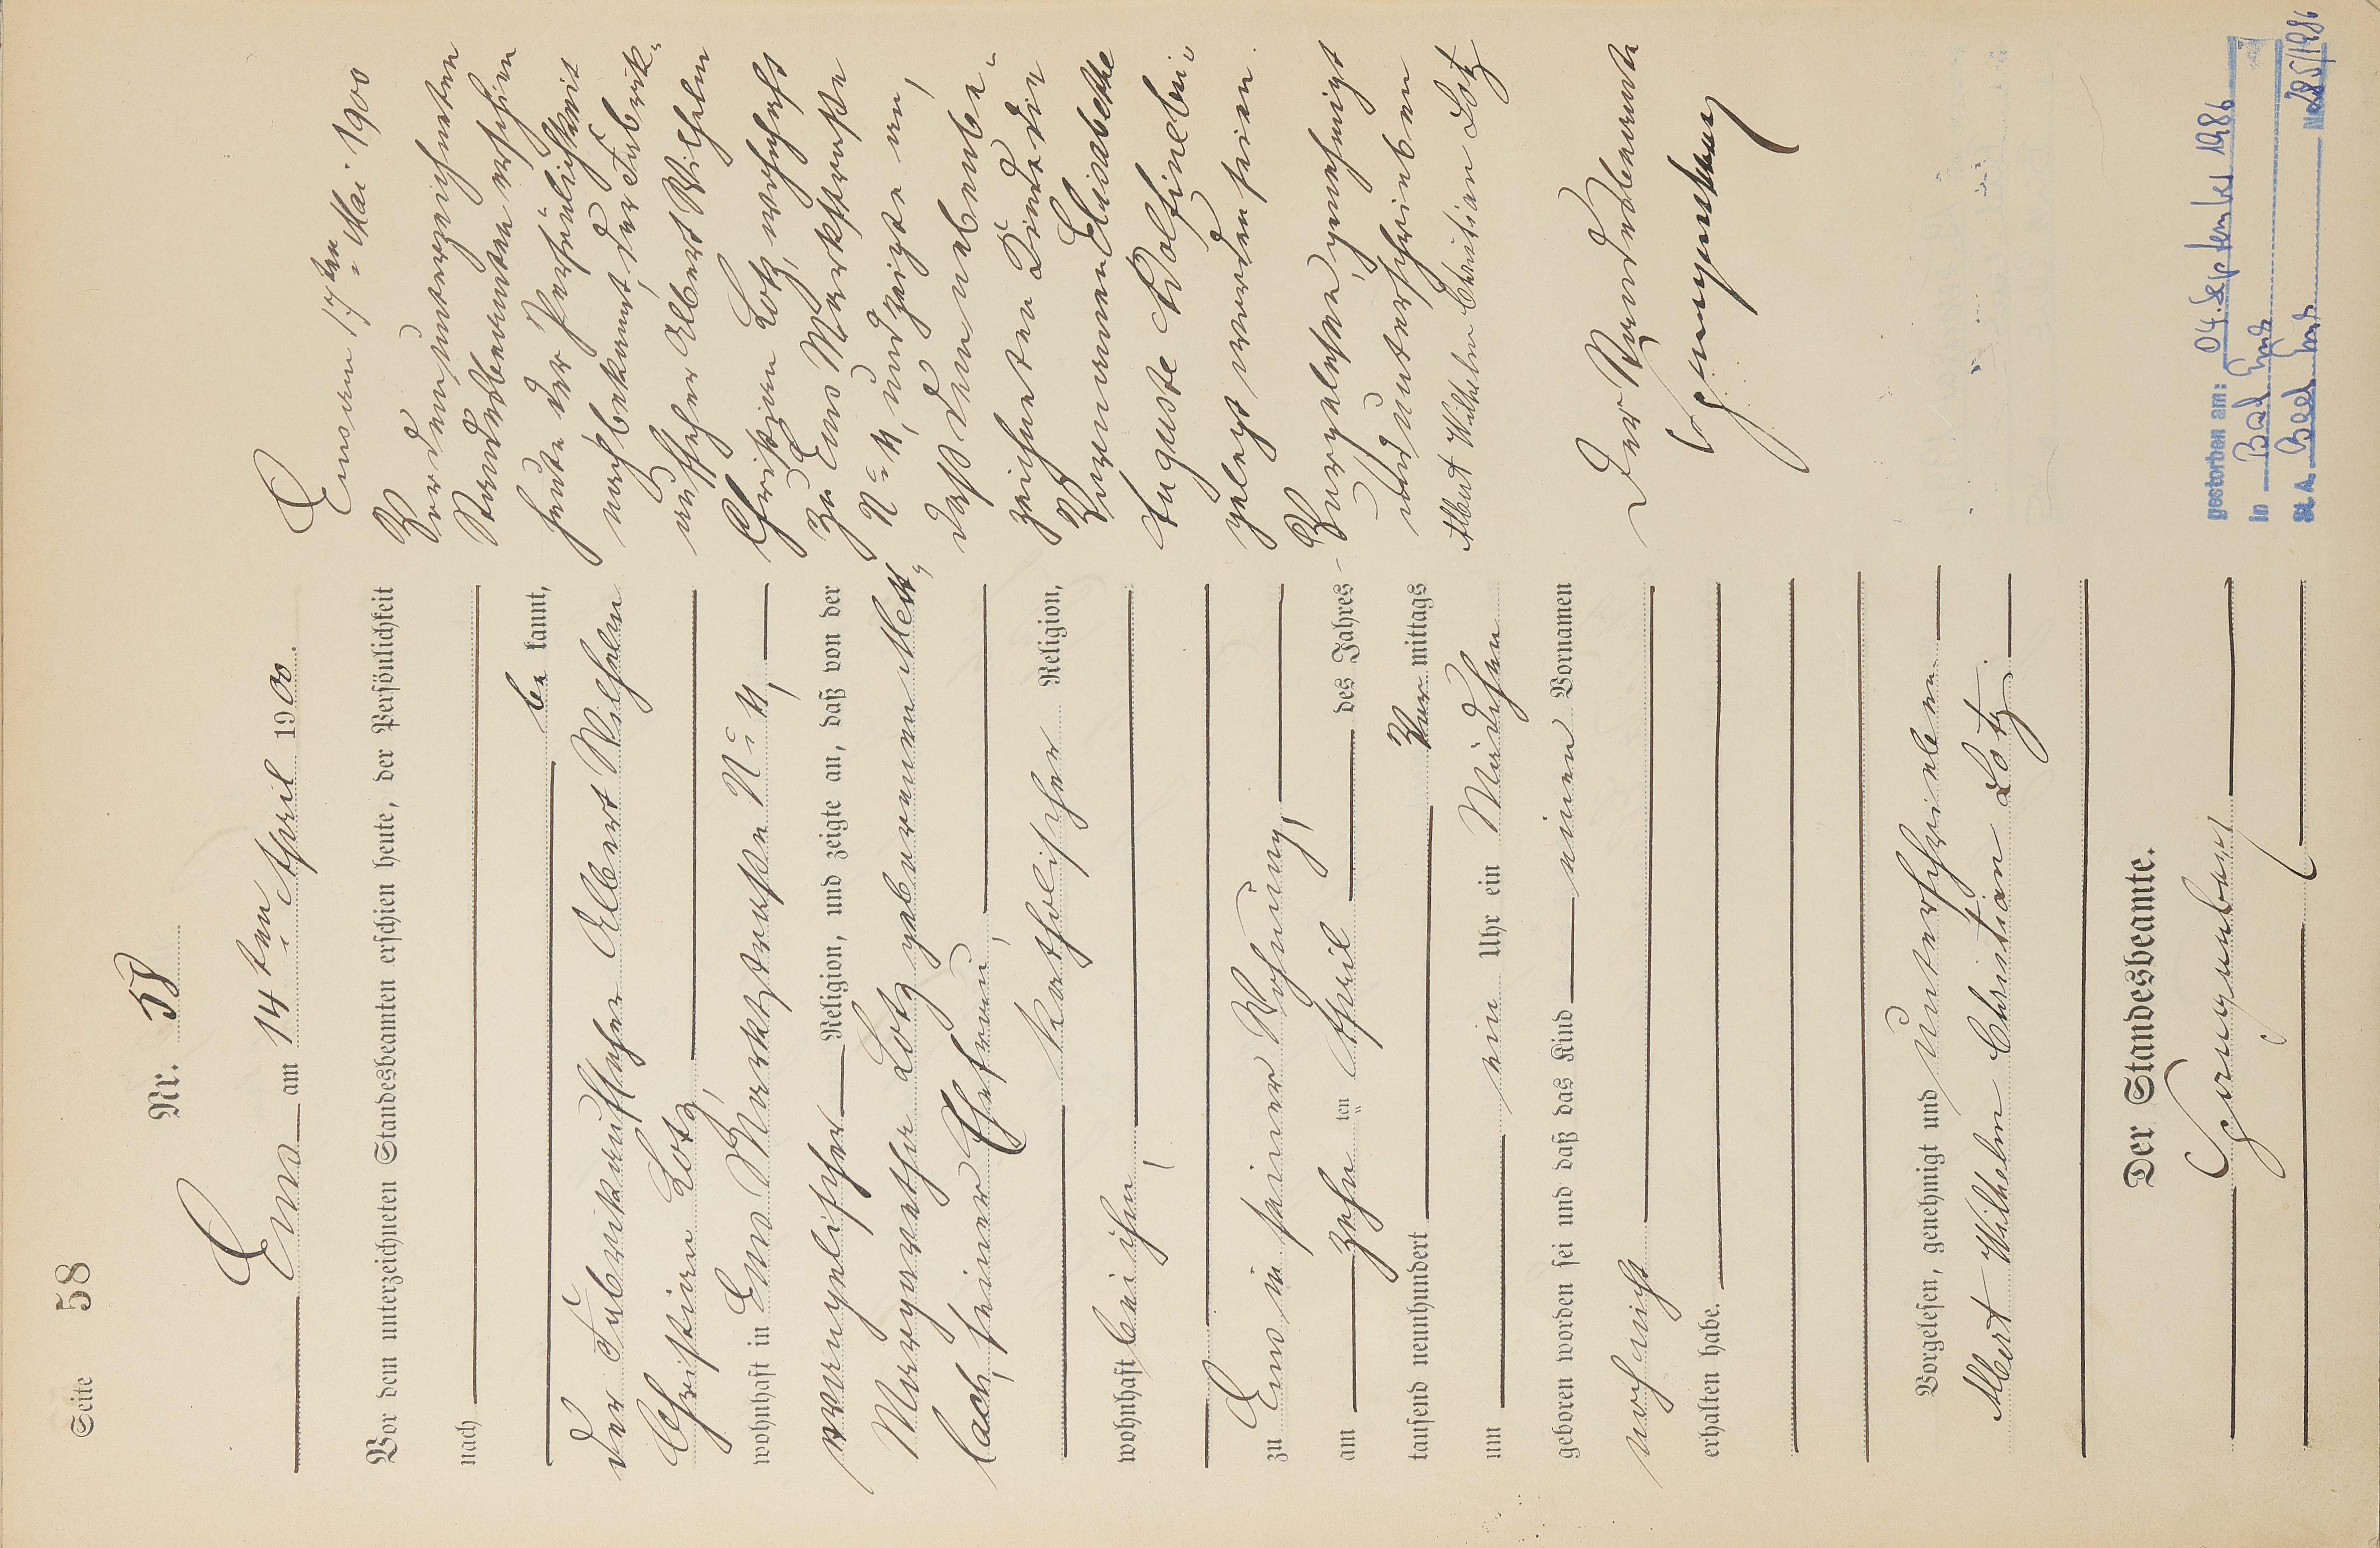 Seite 58
Nr. 58
Ems am 14ten April 1900.
Vor dem unterzeichneten Standesbeamten erschien heute, der Persönlichkeit
nach
be kannt,
der Fabrikaufseher Albert Wilhelm
Christian Lotz,
wohnhaft in Ems Marktstraße No 4,
evangelischer Religion, und zeigte an, daß von der
Margarethe Lotz geborenen Mett,
lach, seiner Ehefrau,
katholischer Religion,
wohnhaft bei ihm,
zu Ems in seiner Wohnung,
am zehn ten April des Jahres
tausend neunhundert Vor mittags
um ein Uhr ein Mädchen
geboren worden sei und daß das Kind einen Vornamen
noch nicht
erhalten habe.
Vorgelesen, genehmigt und unterschrieben
Albert Wilhelm Christian Lotz.
Der Standesbeamte.
Ems am 17ten Mai 1900
Vor dem unterzeichneten
Standesbeamten erschien
heute der Persönlichkeit
nach bekannt, der Fabrik-
aufseher Albert Wilhelm
Christian Lotz, wohnhaft
zu Ems Marktstraße
No 4, und zeigte an,
daß dem nebenbe-
zeichneten Kinde die
Vornamen Elisabethe
Auguste Adolfine bei-
gelegt worden seien.
Vorgelesen, genehmigt
und unterschrieben
Albert Wilhelm Christian Lotz
Der Standesbeamte
gestorben am: 04. September 1986
in Bad Ems
St. A. Bad Ems Nr. 285/1986